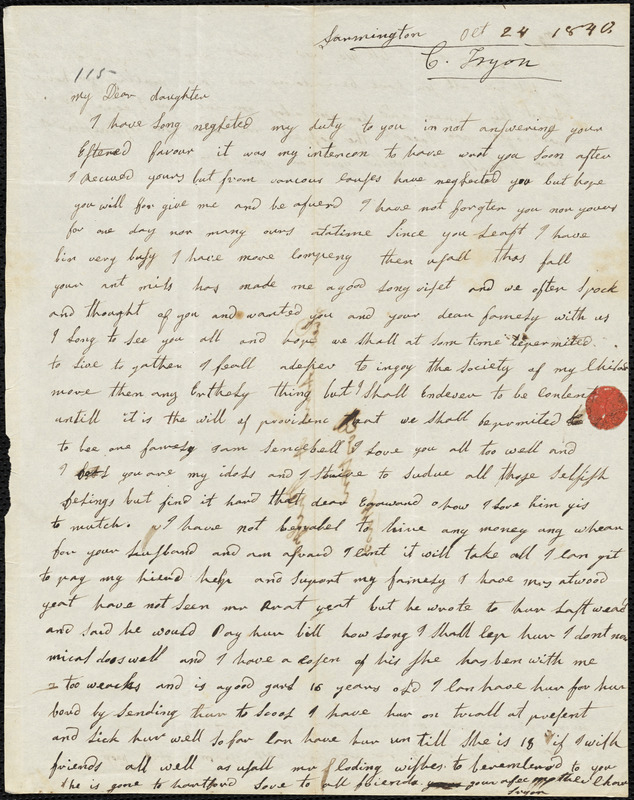 Farmington Oct 24 1840
C. Tryon
115
my Dear daughter
I have Long neglited my duty to you in not answering your
Esteened favour it was my intercon to have wrot you Soon after
I Recived yours but from various Causes have neglected you but hope
you will for give me and be asuerd I have not forgter you nor yours
for one day nor many ours atatime Since you Leaft I have
bin very busy I have more Compeny then usall this fall
your ant mils has made me agood Long viset and we often Spock
and thought of you and wanted you and your dear famely with us
I Long to See you all and hope we shall at Som time bepermited
to Live to gather I feall adesier to injoy the Society of my Childr
more then any Erthely thing but I Shall Endever to be Content
untill it is the will of providenc that we shall bepermited to
to bee one famely I am Sencebell I Love you all too well and
I you are my idols and I Strive to sudue all those Selfish
felings but find it hard that dear Edward o how I Love him yis
to mutch. I have not benabel to hire any money any whear
for your husband and am afraid I cant it will take all I Can git
to pay my hierd help and suport my famely I have Mrs atwood
yeat have not Seen mr yeat but he wrote to hur Last weeak
and Said he would Pay hur bill how Long I Shall kep hur I dont no
mical dos well and I have a Cosen of his She has ben with me
2 too weacks and is agood garl 16 years old I Can have hur for hur
bord by Sending hur to Scool I have hur on triall at present
and Lick hur well So far Can have hur un till She is 18 if I wish
friends all well as usall mr Loding wishes to beremberd to you
She is gone to hartford Love to all friends your afec mother Chare
Tryon